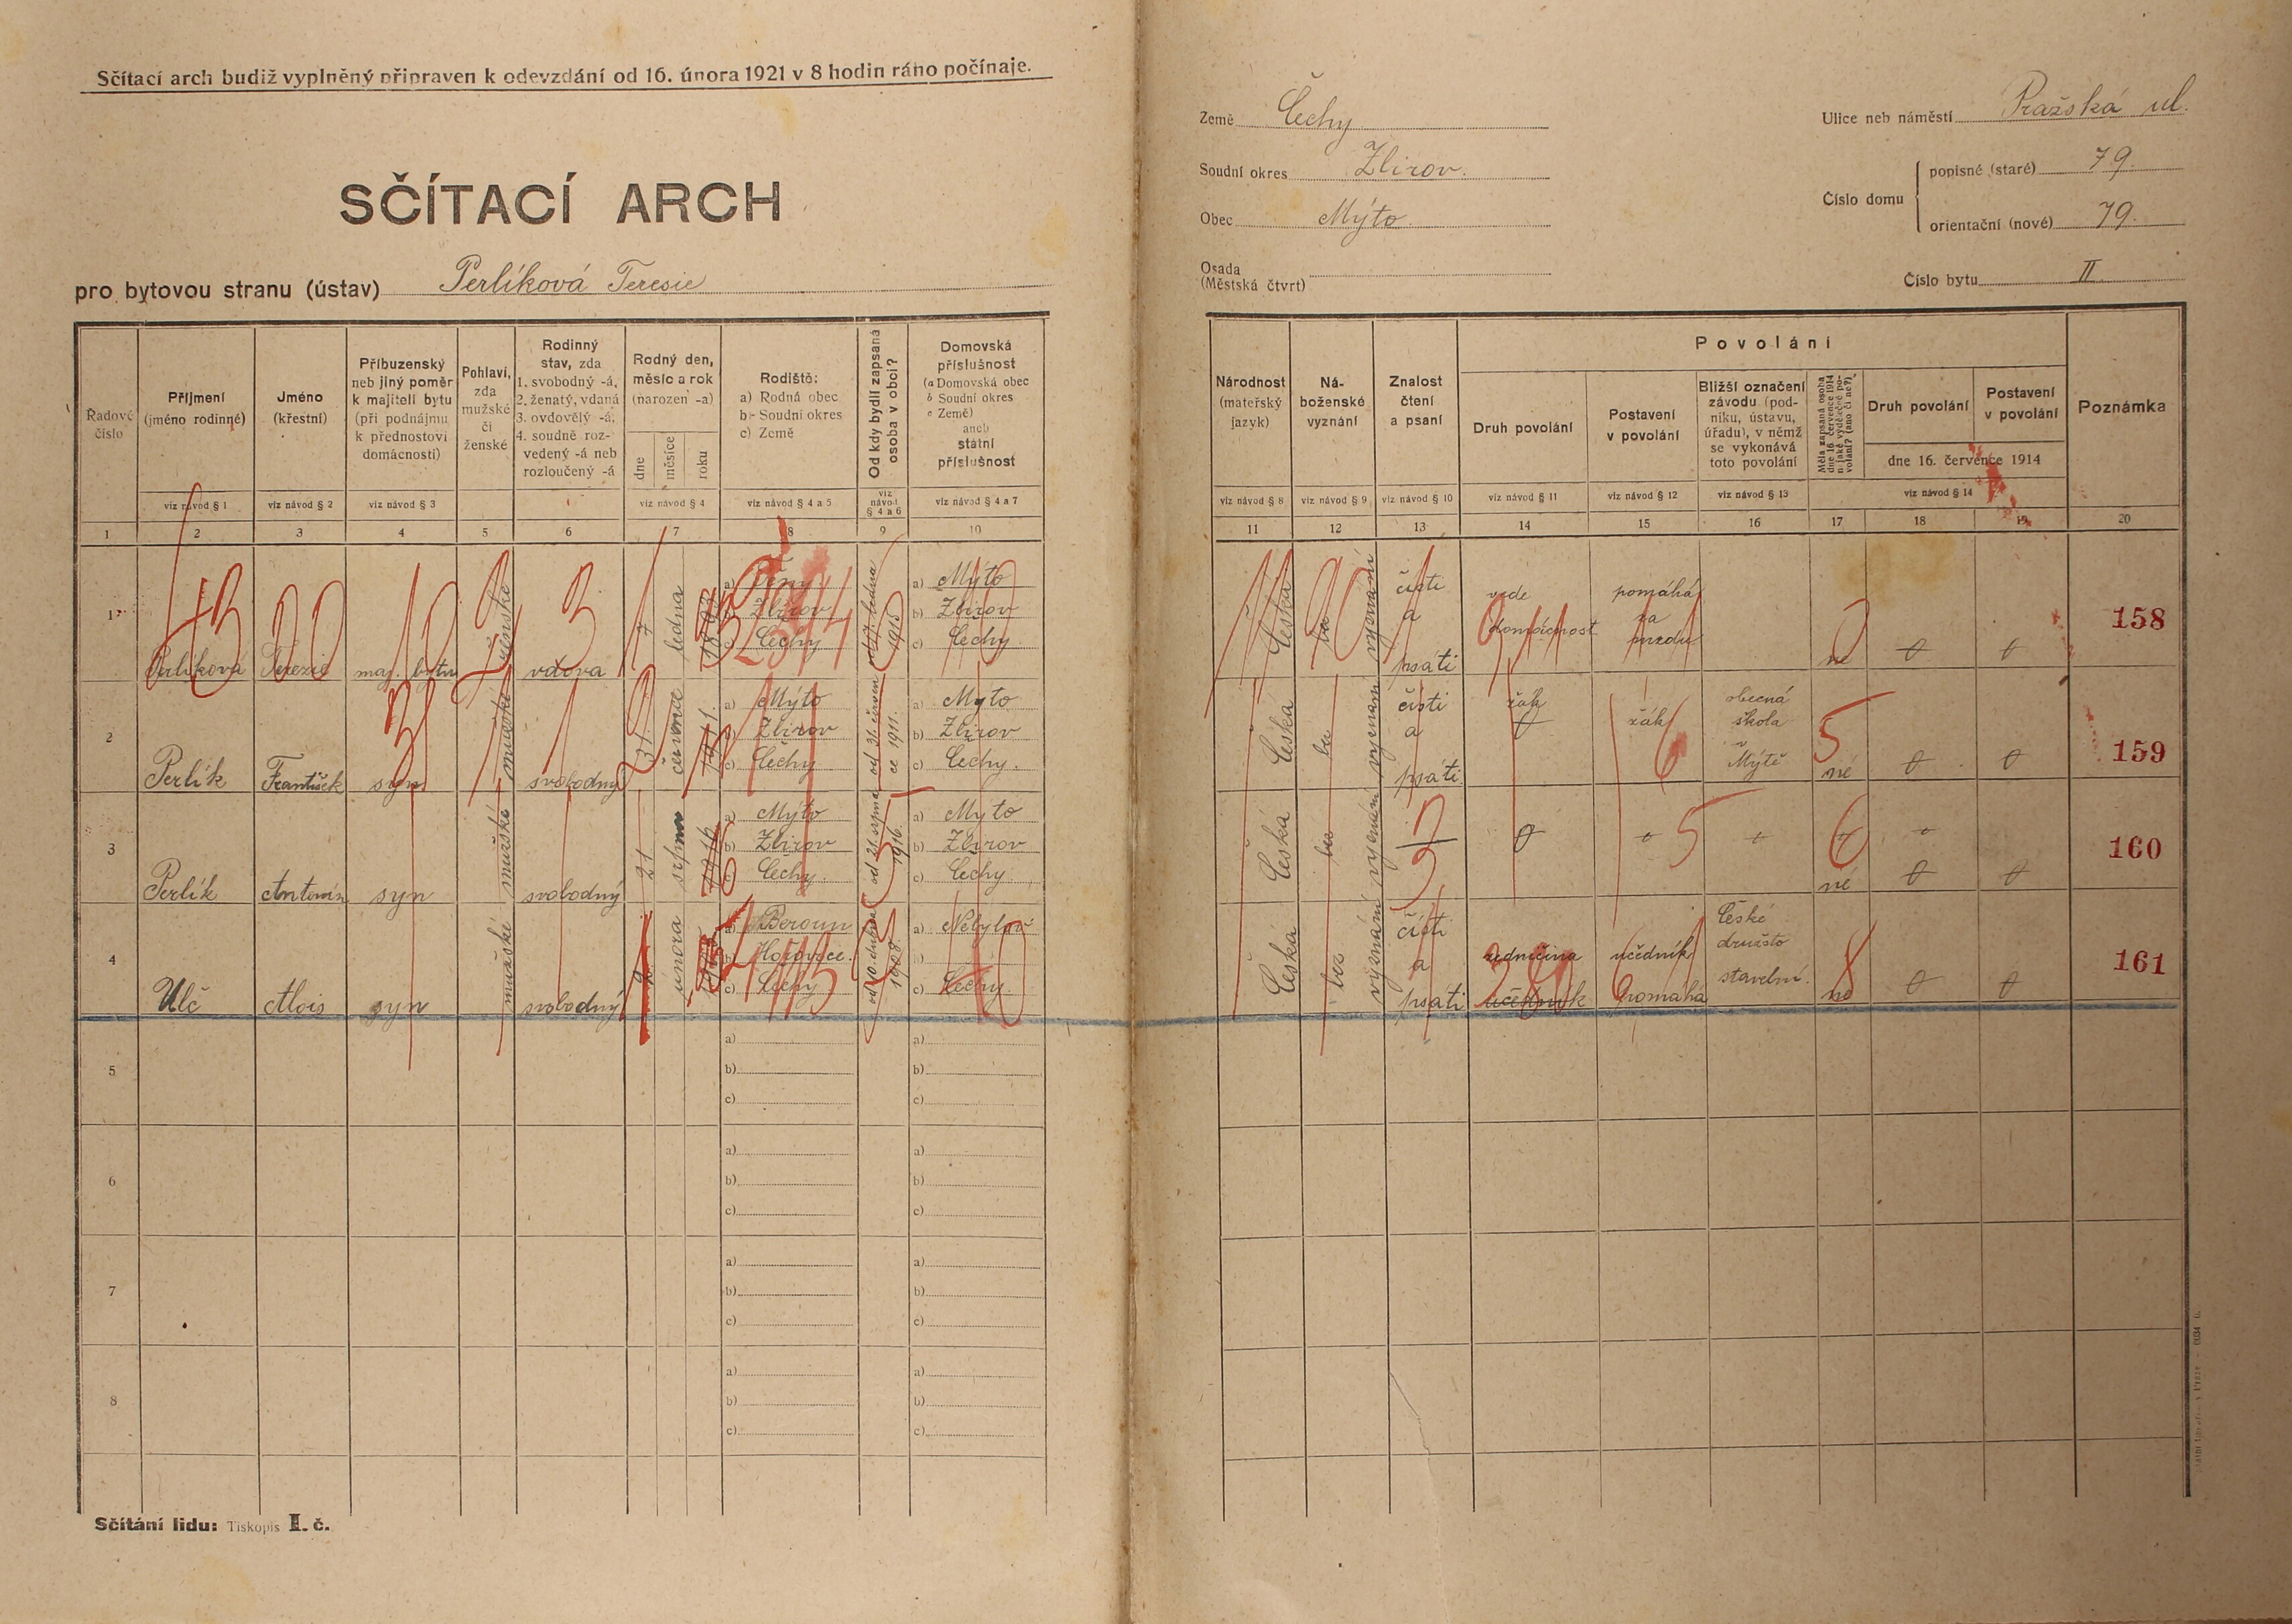 Sčítací arch budiž vyplněný připraven k odevzdání od 16. února 1921 v 8 hodin ráno počínaje.
SČÍTACÍ ARCH
pro bytovou stranu (ústav) Perlíková Teresie
Země Čechy
Soudní okres Zbirov.
Obec Mýto
Osada
(Městská čtvrt)
Ulice neb náměstí Pražská ul.
Číslo domu
popisné (staré) 79.
orientační (nové) 79.
Číslo bytu II.
Řadové
číslo
Příjmení
(jméno rodinné)
viz návod § 1
Jméno
(křestní)
viz návod § 2
Příbuzenský
neb jiný poměr
k majiteli bytu
(při podnájmu
k přednostovi
domácnosti)
viz návod § 3
Pohlaví,
zda
mužské
či
ženské
Rodinný
stav, zda
1. svobodný -á,
2. ženatý, vdaná
3. ovdovělý -á,
4. soudně roz-
vedený -á neb
rozloučený -á
Rodný den,
měsíc a rok
(narozen -a)
dne
měsíce
roku
viz návod § 4
Rodiště:
a) Rodná obec
b) Soudní okres
c) Země
viz návod § 4 a 5
Od kdy bydlí zapsaná
osoba v obci?
viz
návod
§ 4 a 6
Domovská
příslušnost
(a Domovská obec
b Soudní okres
c Země)
aneb
státní
příslušnost
viz návod § 4 a 7
Národnost
(mateřský
jazyk)
viz návod § 8
Ná-
boženské
vyznání
viz návod § 9
Znalost
čtení
a psaní
viz návod § 10
Povolání
Druh povolání
viz návod § 11
Postavení
v povolání
viz návod § 12
Bližší označení
závodu (pod-
niku, ústavu,
úřadu), v němž
se vykonává
toto povolání
viz návod § 13
Měla zapsaná osoba
dne 16 července 1914
nějaké výdělečné po-
volání? (ano či ne?)
Druh povolání
Postavení
v povolání
dne 16. července 1914
viz návod § 14
Poznámka
1 2 3 4 5 6 7 8 9 10
11 12 13 14 15 16 17 18 19 20
1
Perlíková Terezie maj. bytu ženské vdova
7 ledna
b) Zbirov
c) Čechy
1915
a) Mýto
b) Zbirov
c) Čechy
Česká
bez vyznání
čísti
a
psáti
vede
domácnost
pomáhá
za
mzdu
ne 0 0
158
2
Perlík František syn mužské svobodný
31. července 1911.
a) Mýto
b) Zbirov
c) Čechy
od 31. červen
ce 1911.
a) Mýto
b) Zbirov
c) Čechy.
Česká
bez vyznání
čísti
a
psáti
žák
0
žák
obecná
škola
v
Mýtě
né 0 0
159
3
Perlík Antonín syn mužské svobodný
21 srpna
a) Mýto
b) Zbirov
c) Čechy.
od 21. srpna
1916.
a) Mýto
b) Zbirov
c) Čechy
Česká
bez vyznání
0
né 0 0
160
4
Ulč Alois syn mužské svobodný
února
a) Beroun
b) Hořovice.
c) Čechy
1908.
a)
b)
c) Čechy.
Česká
bez vyznání
čísti
a
psáti
zedničina
učedník
učedník
pomáhá
České
družsto
stavební.
ne 0 0
161
5
a)
b)
c)
a)
b)
c)
6
a)
b)
c)
a)
b)
c)
7
a)
b)
c)
a)
b)
c)
8
a)
b)
c)
a)
b)
c)
Sčítání lidu: Tiskopis I. č.